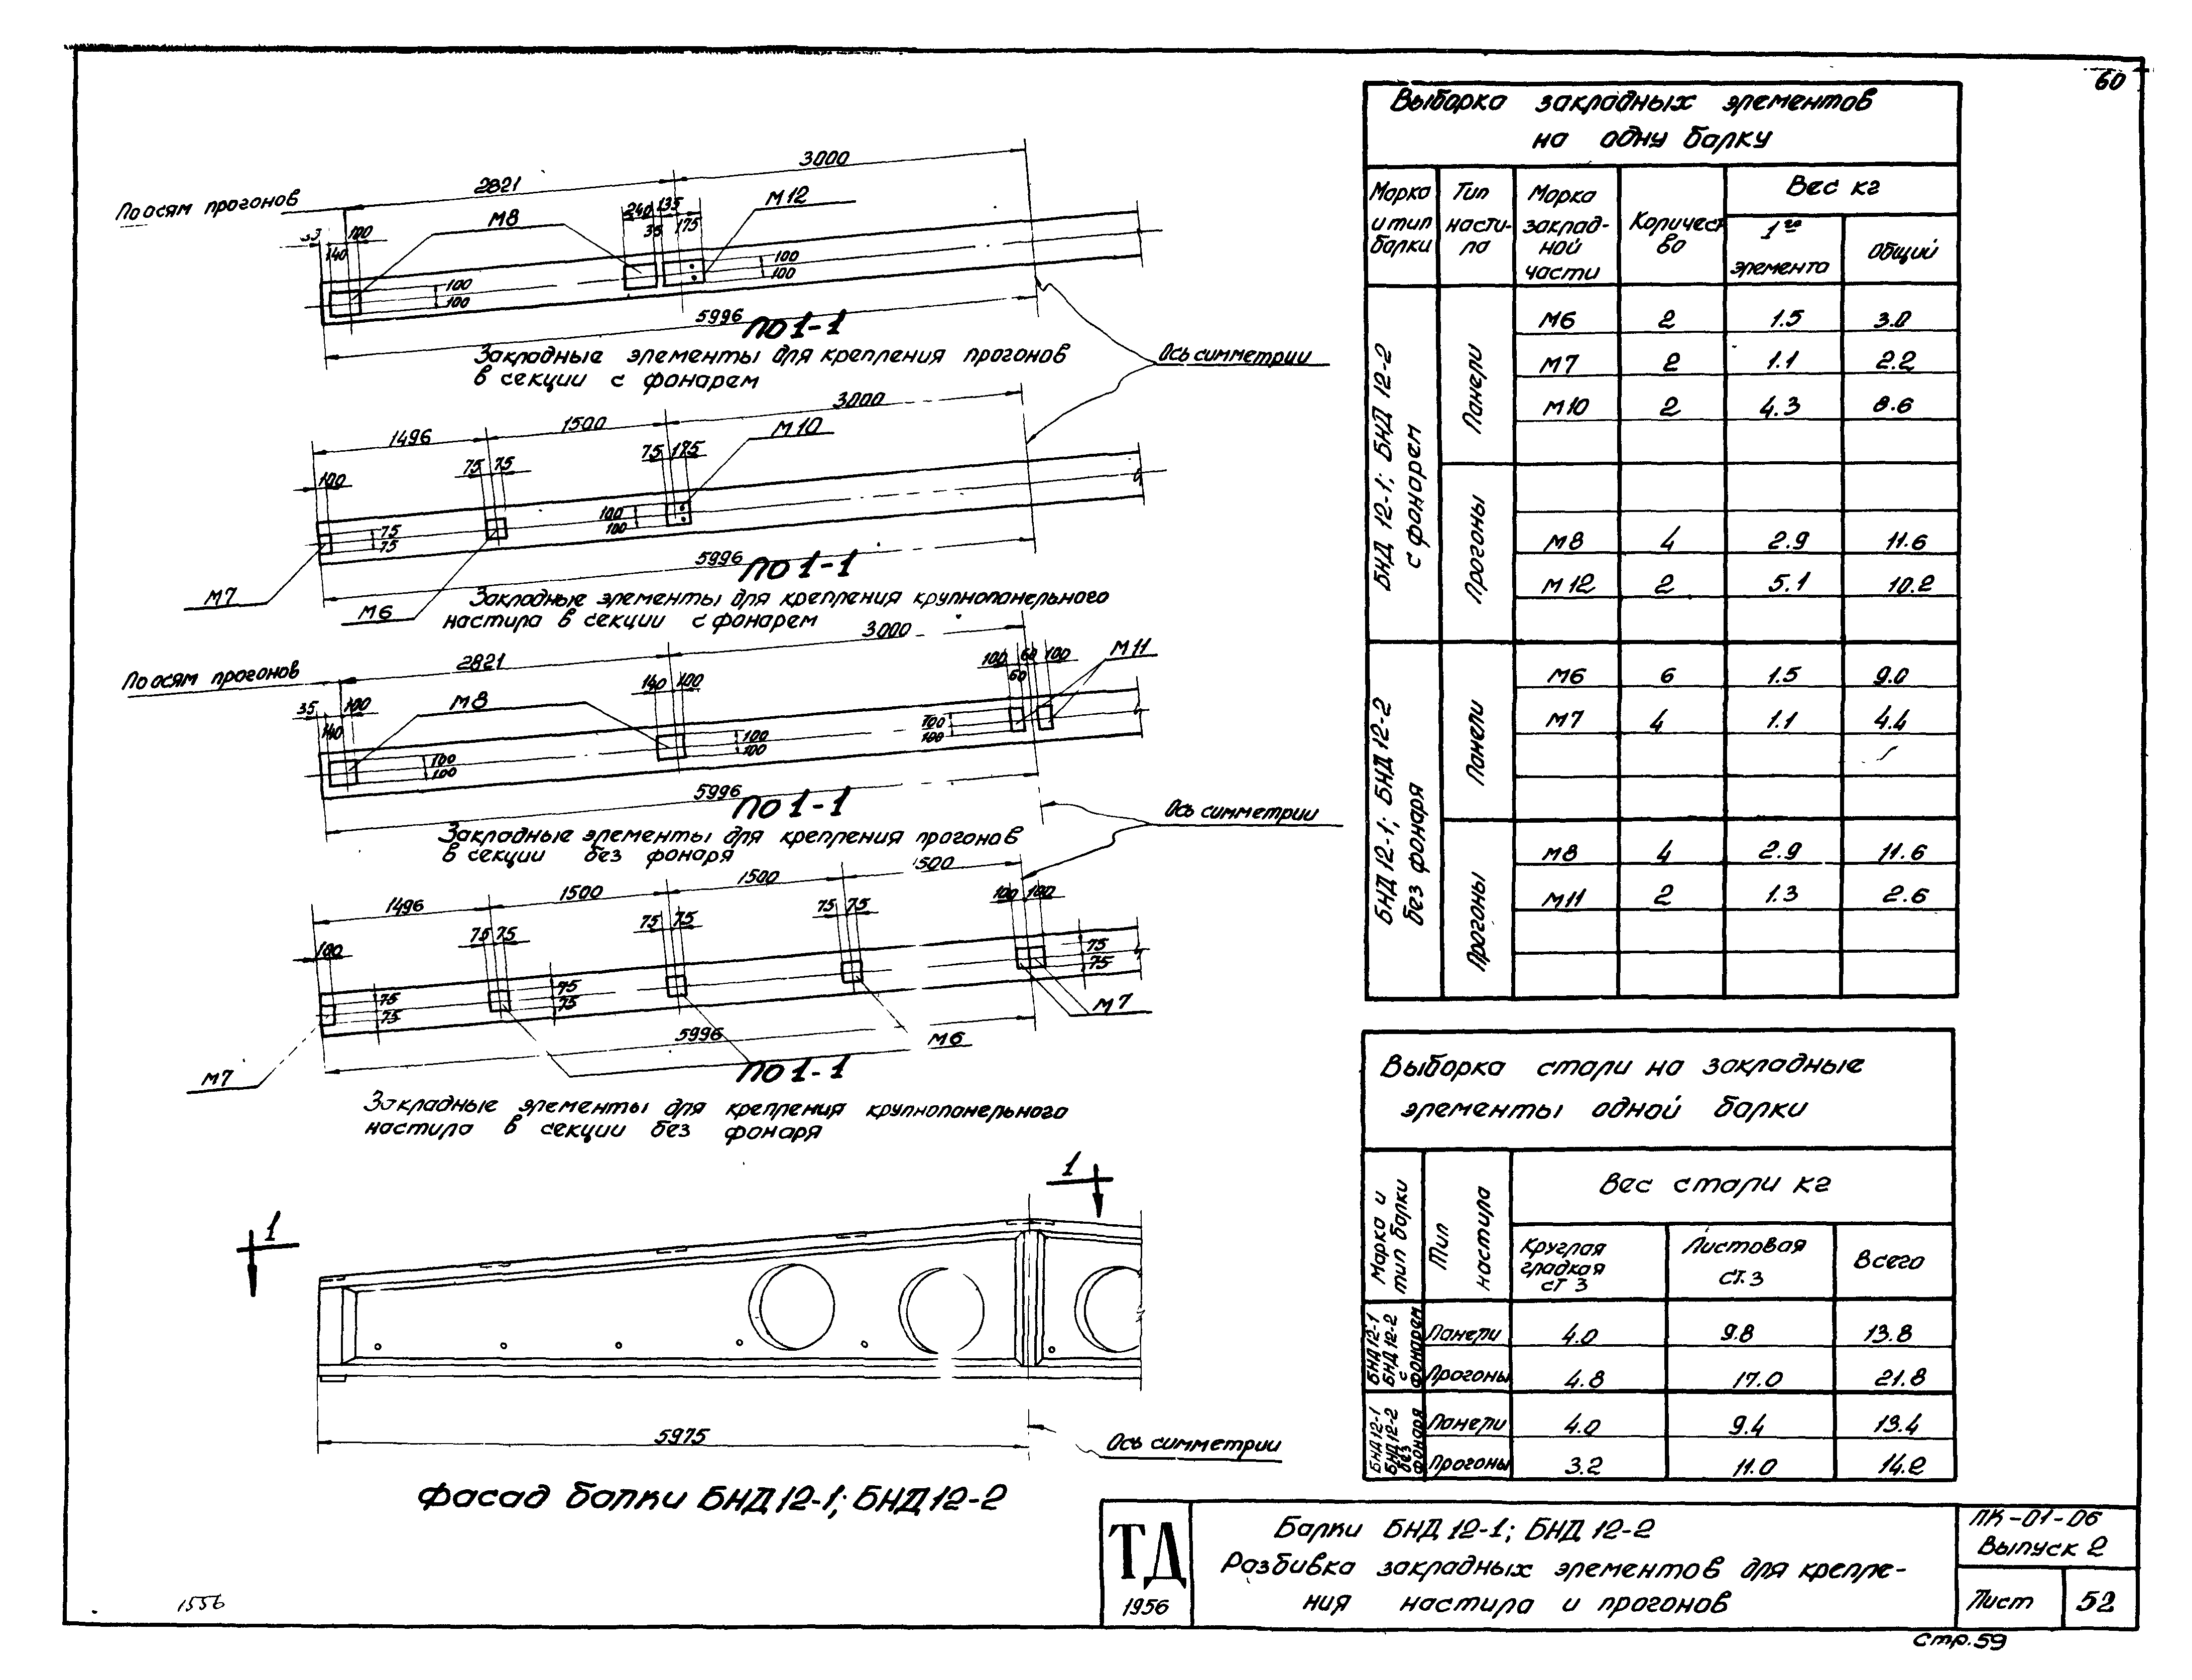 60
По осям прогонов
2821
3000
35
100
140
М8
240
135
35
175
М12
100
100
100
100
5996
По 1-1
Закладные элементы для крепления прогонов
в секции с фонарем
Ось симметрии
1496
1500
3000
100
75
75
75
175
М10
75
75
100
100
5996
М7
М6
По 1-1
Закладные элементы для крепления крупнопанельного
настила в секции с фонарем
По осям прогонов
2821
3000
35
100
140
М8
140
100
100
60
100
60
М11
100
100
100
100
100
100
5996
По 1-1
Закладные элементы для крепления прогонов
в секции без фонаря
Ось симметрии
1496
1500
1500
1500
100
75
75
75
75
75
75
100
100
75
75
75
75
75
75
5996
М7
М6
М7
По 1-1
Закладные элементы для крепления крупнопанельного
настила в секции без фонаря
1
1
5975
Ось симметрии
Фасад балки БНД 12-1; БНД 12-2
Выборка закладных элементов
на одну балку
Марка и тип балки
Тип настила
Марка закладной части
Количество
Вес кг
1го элемента
Общий
БНД 12-1; БНД 12-2
с фонарем
Панели
М6 2 1.5 3.0
М7 2 1.1 2.2
М10 2 4.3 8.6
Прогоны
М8 4 2.9 11.6
М12 2 5.1 10.2
БНД 12-1; БНД 12-2
без фонаря
Панели
М6 6 1.5 9.0
М7 4 1.1 4.4
Прогоны
М8 4 2.9 11.6
М11 2 1.3 2.6
Выборка стали на закладные
элементы одной балки
Марка и тип балки
Тип настила
Вес стали кг
Круглая гладкая ст 3
Листовая ст. 3
Всего
БНД 12-1
БНД 12-2
с фонарем
Панели 4.0 9.8 13.8
Прогоны 4.8 17.0 21.8
БНД 12-1
БНД 12-2
без фонаря
Панели 4.0 9.4 13.4
Прогоны 3.2 11.0 14.2
ТД
1956
Балки БНД 12-1; БНД 12-2
Разбивка закладных элементов для крепле-
ния настила и прогонов
ПК-01-06
Выпуск 2
Лист 52
1556
стр. 59